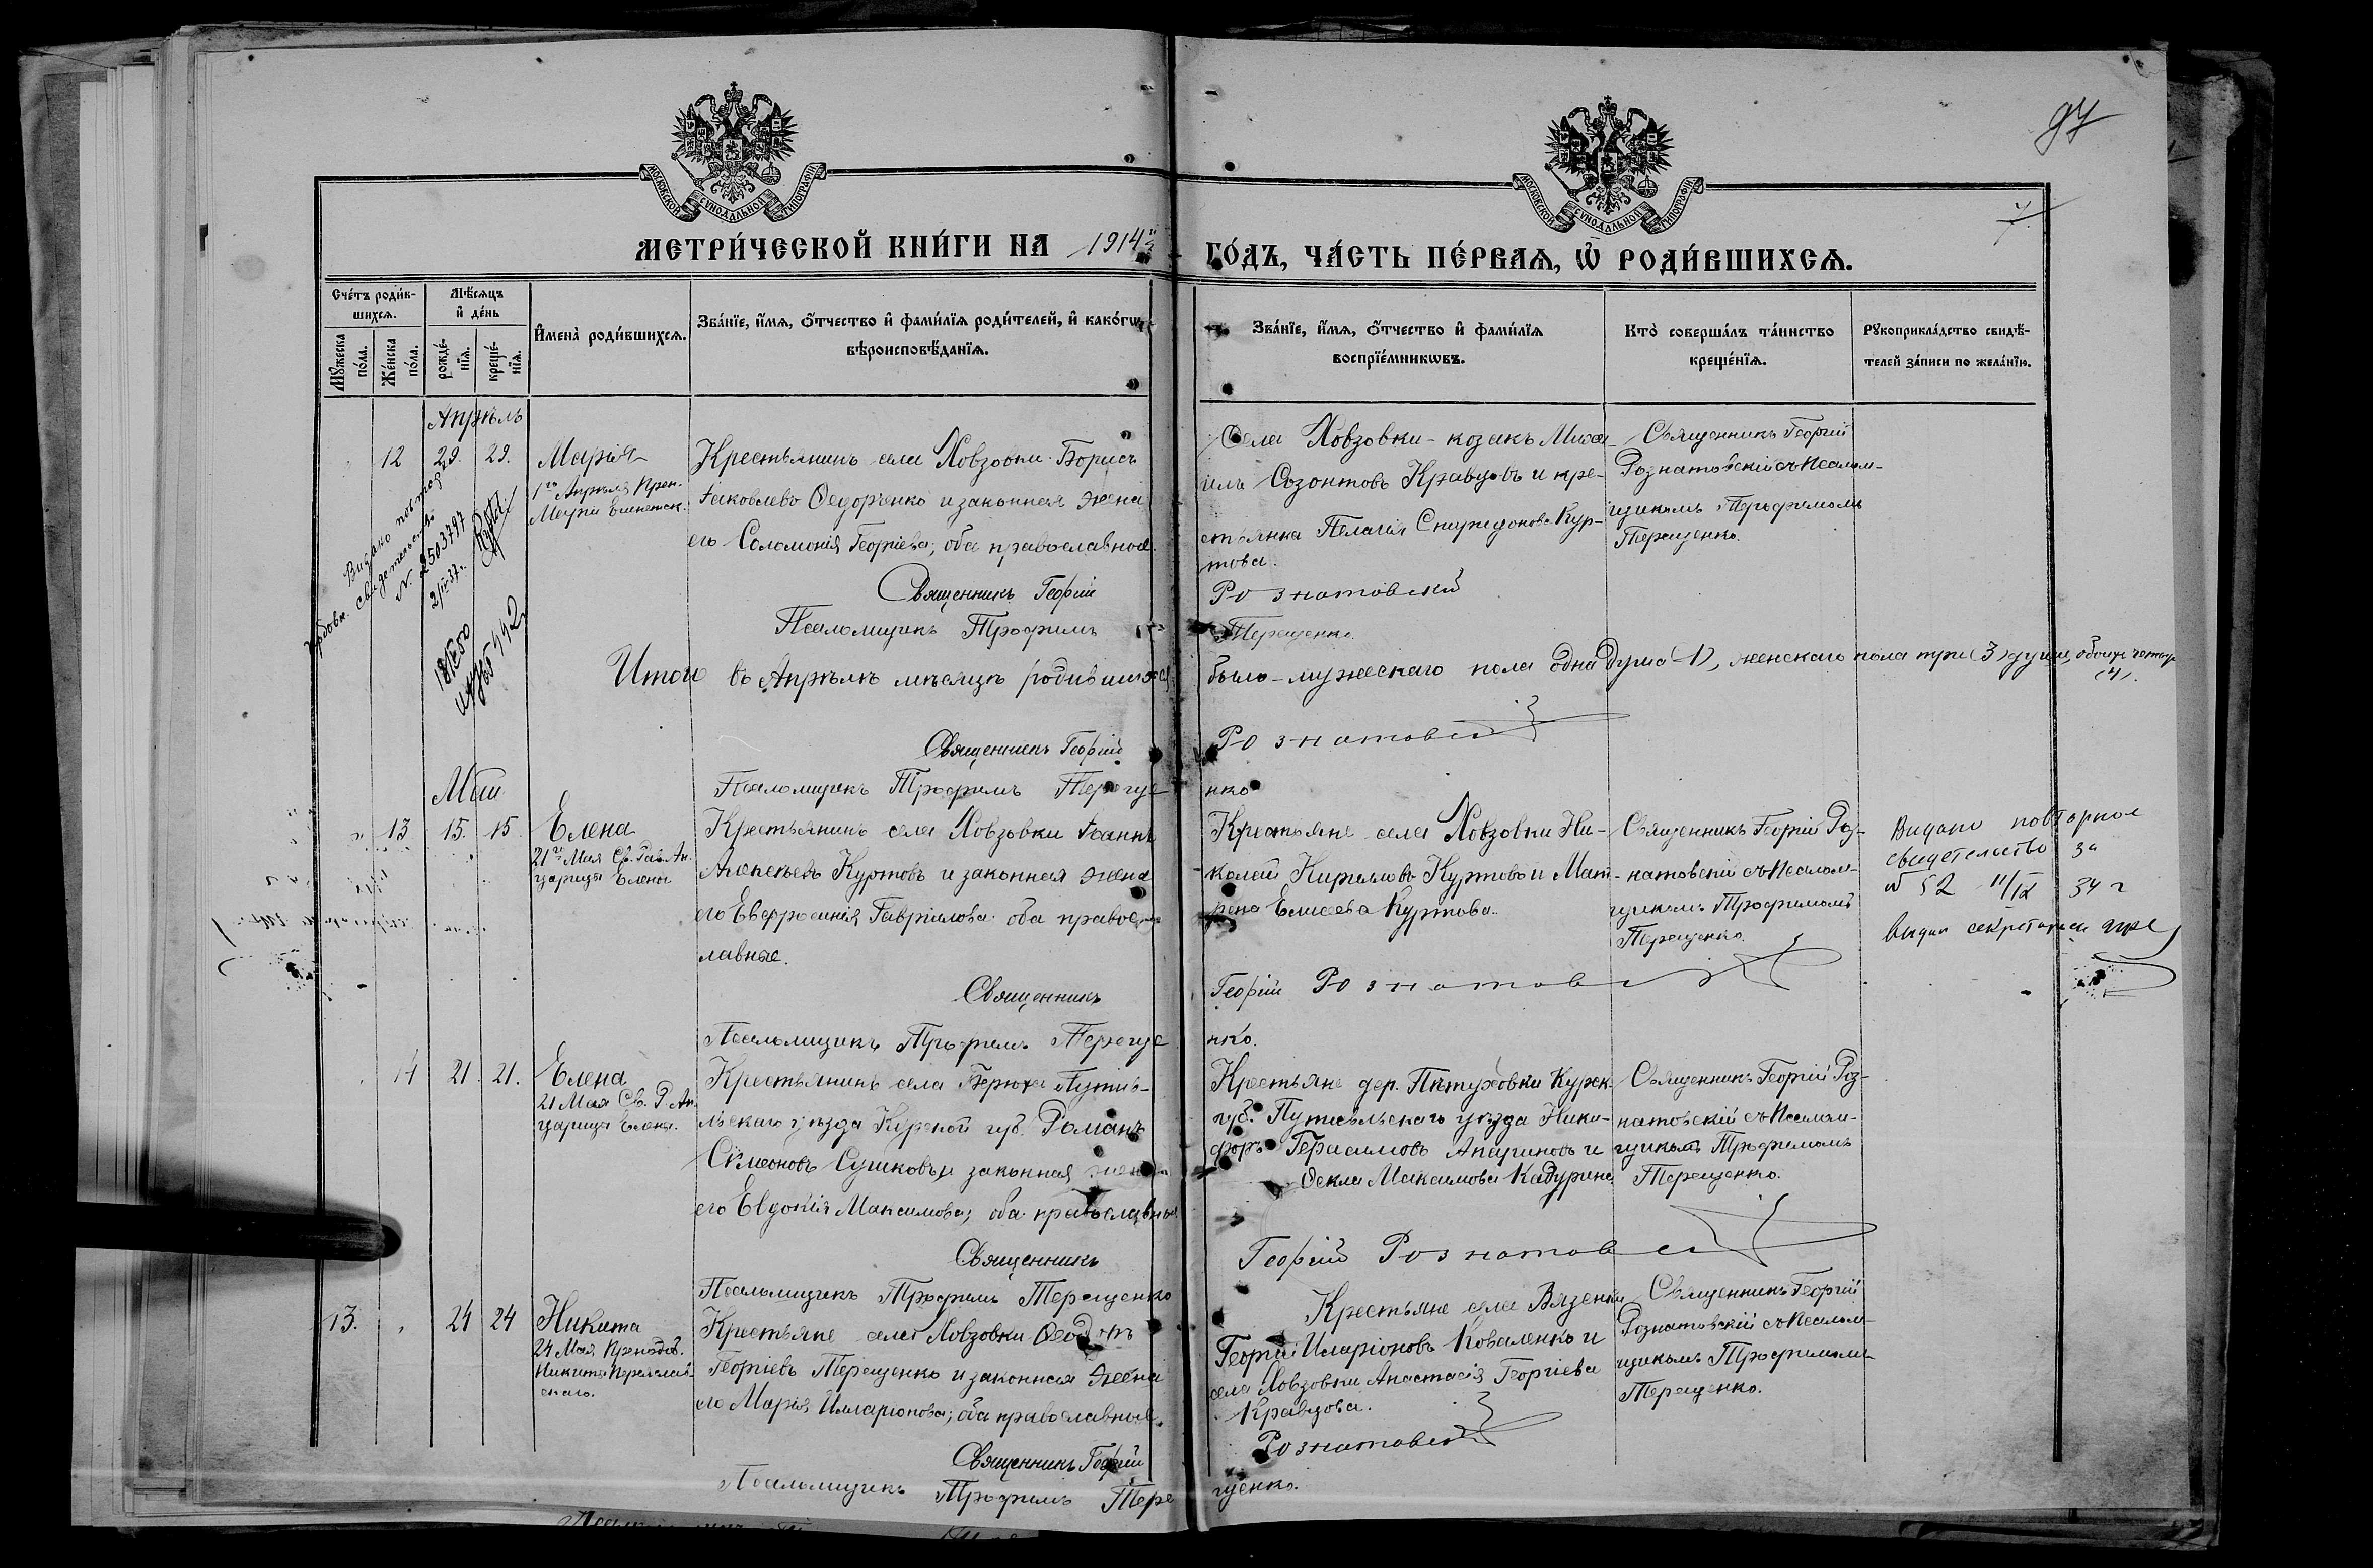 97
7.
МОСКОВСКОЙ СУНОДАЛЬНОЙ ТИПОГРАФІИ
МОСКОВСКОЙ СУНОДАЛЬНОЙ ТИПОГРАФІИ
МЕТРИ́ЧЕСКОЙ КНИ́ГИ НА 1914й
ГО́ДЪ, ЧА́СТЬ ПЕ́РВАѦ, Ѿ РОДИ́ВШИХСѦ.
Сче́тъ роди́в-
шихсѧ.
Мꙋ́жеска по́ла.
Же́нска по́ла.
Мѣ́сѧцъ
и҆ де́нь
рожде́-
нїѧ.
креще́-
нїѧ.
И҆мена̀ роди́вшихсѧ.
Зва́нїе, и҆́мѧ, ѻ҆́тчество и҆ фами́лїѧ роди́телей, и҆ како́гѡ
вѣроисповѣ́данїѧ.
Зва́нїе, и҆́мѧ, ѻ҆́тчество и҆ фами́лїѧ
воспрїе́мникѡвъ.
Кто̀ соверша́лъ та́инство
креще́нїѧ.
Рꙋкоприкла́дство свидѣ́-
телей за́писи по жела́нїю.
Апрѣль
12 29. 29. Марія
1го Апрѣля Преп.
Маріи Египетск.
Крестьянинъ села Ховзовки Борисъ
Іаковлевъ Ѳедорченко и законная жена
его Соломонія Георгіева; оба православные.
Священникъ Георгій
Псаломщикъ Трофимъ
Села Ховзовки - козакъ Миха-
илъ Созонтовъ Кравцовъ и кре-
стьянка Пелагія Спиридонова Кур-
това.
Рознатовскій
Терещенко.
Священникъ Георгій
Рознатовскій съ псалом-
щикомъ Трофимомъ
Терещенко.
Видано
свидетельство
N. 2503797
2/IV 37 г.
Итого въ Апрѣлѣ мѣсяцѣ родившихся
было - мужескаго пола одна душа (1), женскаго пола три (3) души, обоихъ четыре
(4).
Священникъ Георгій
Рознатовскій
Псаломщикъ Трофимъ Тереще
нко
Май
13 15. 15 Елена
21го Мая Св. Рав. Ап.
царицы Елены
Крестьянинъ села Ховзовки Іоаннъ
Алексѣевъ Куртовъ и законная жена
его Евфросинія Гавріилова оба правос-
лавные.
Священникъ
Псаломщикъ Трофимъ Тереще
Крестьяне села Ховзовки Ни-
колай Кирилловъ Куртовъ и Мат-
рона Елисеева Куртова.
Георгій Рознатовскій
нко.
Священникъ Георгій Роз-
натовскій съ псалом-
щикомъ Трофимомъ
Терещенко.
Видано повторное
свидетельство за
№ 52 11/IX 34 г
видан секретарем
14 21. 21. Елена
21 Мая Св. Р. Ап.
царицы Елены.
Крестьянинъ села Берюха Путив-
льскаго уѣзда Курской губ. Романъ
Симеоновъ Сушковъ и законная жена
его Евдокія Максимова; оба православные
Священникъ
Псаломщикъ Трофимъ Терещенко
Крестьяне дер. Пѣтуховки Курск.
губ. Путивльскаго уѣзда Ники-
форъ Герасимовъ Апариновъ и
Ѳекла Максимова Кадурина
Георгій Рознатовскій
Священникъ Георгій Роз-
натовскій съ псалом-
щикомъ Трофимомъ
Терещенко.
13. 24 24 Никита
24 Мая Преподоб.
Никиты Переяслав-
скаго.
Крестьяне села Ховзовки Ѳеодоръ
Георгіевъ Терещенко и законная жена
его Марія Илларіонова; оба православные.
Священникъ Георгій
Псаломщикъ Трофимъ Тере
Крестьяне села Вязенки
Георгій Иларіоновъ Коваленко и
села Ховзовки Анастасія Георгіева
Кравцова.
Рознатовскій
щенко.
Священникъ Георгій
Рознатовскій съ псалом-
щикомъ Трофимомъ
Терещенко.